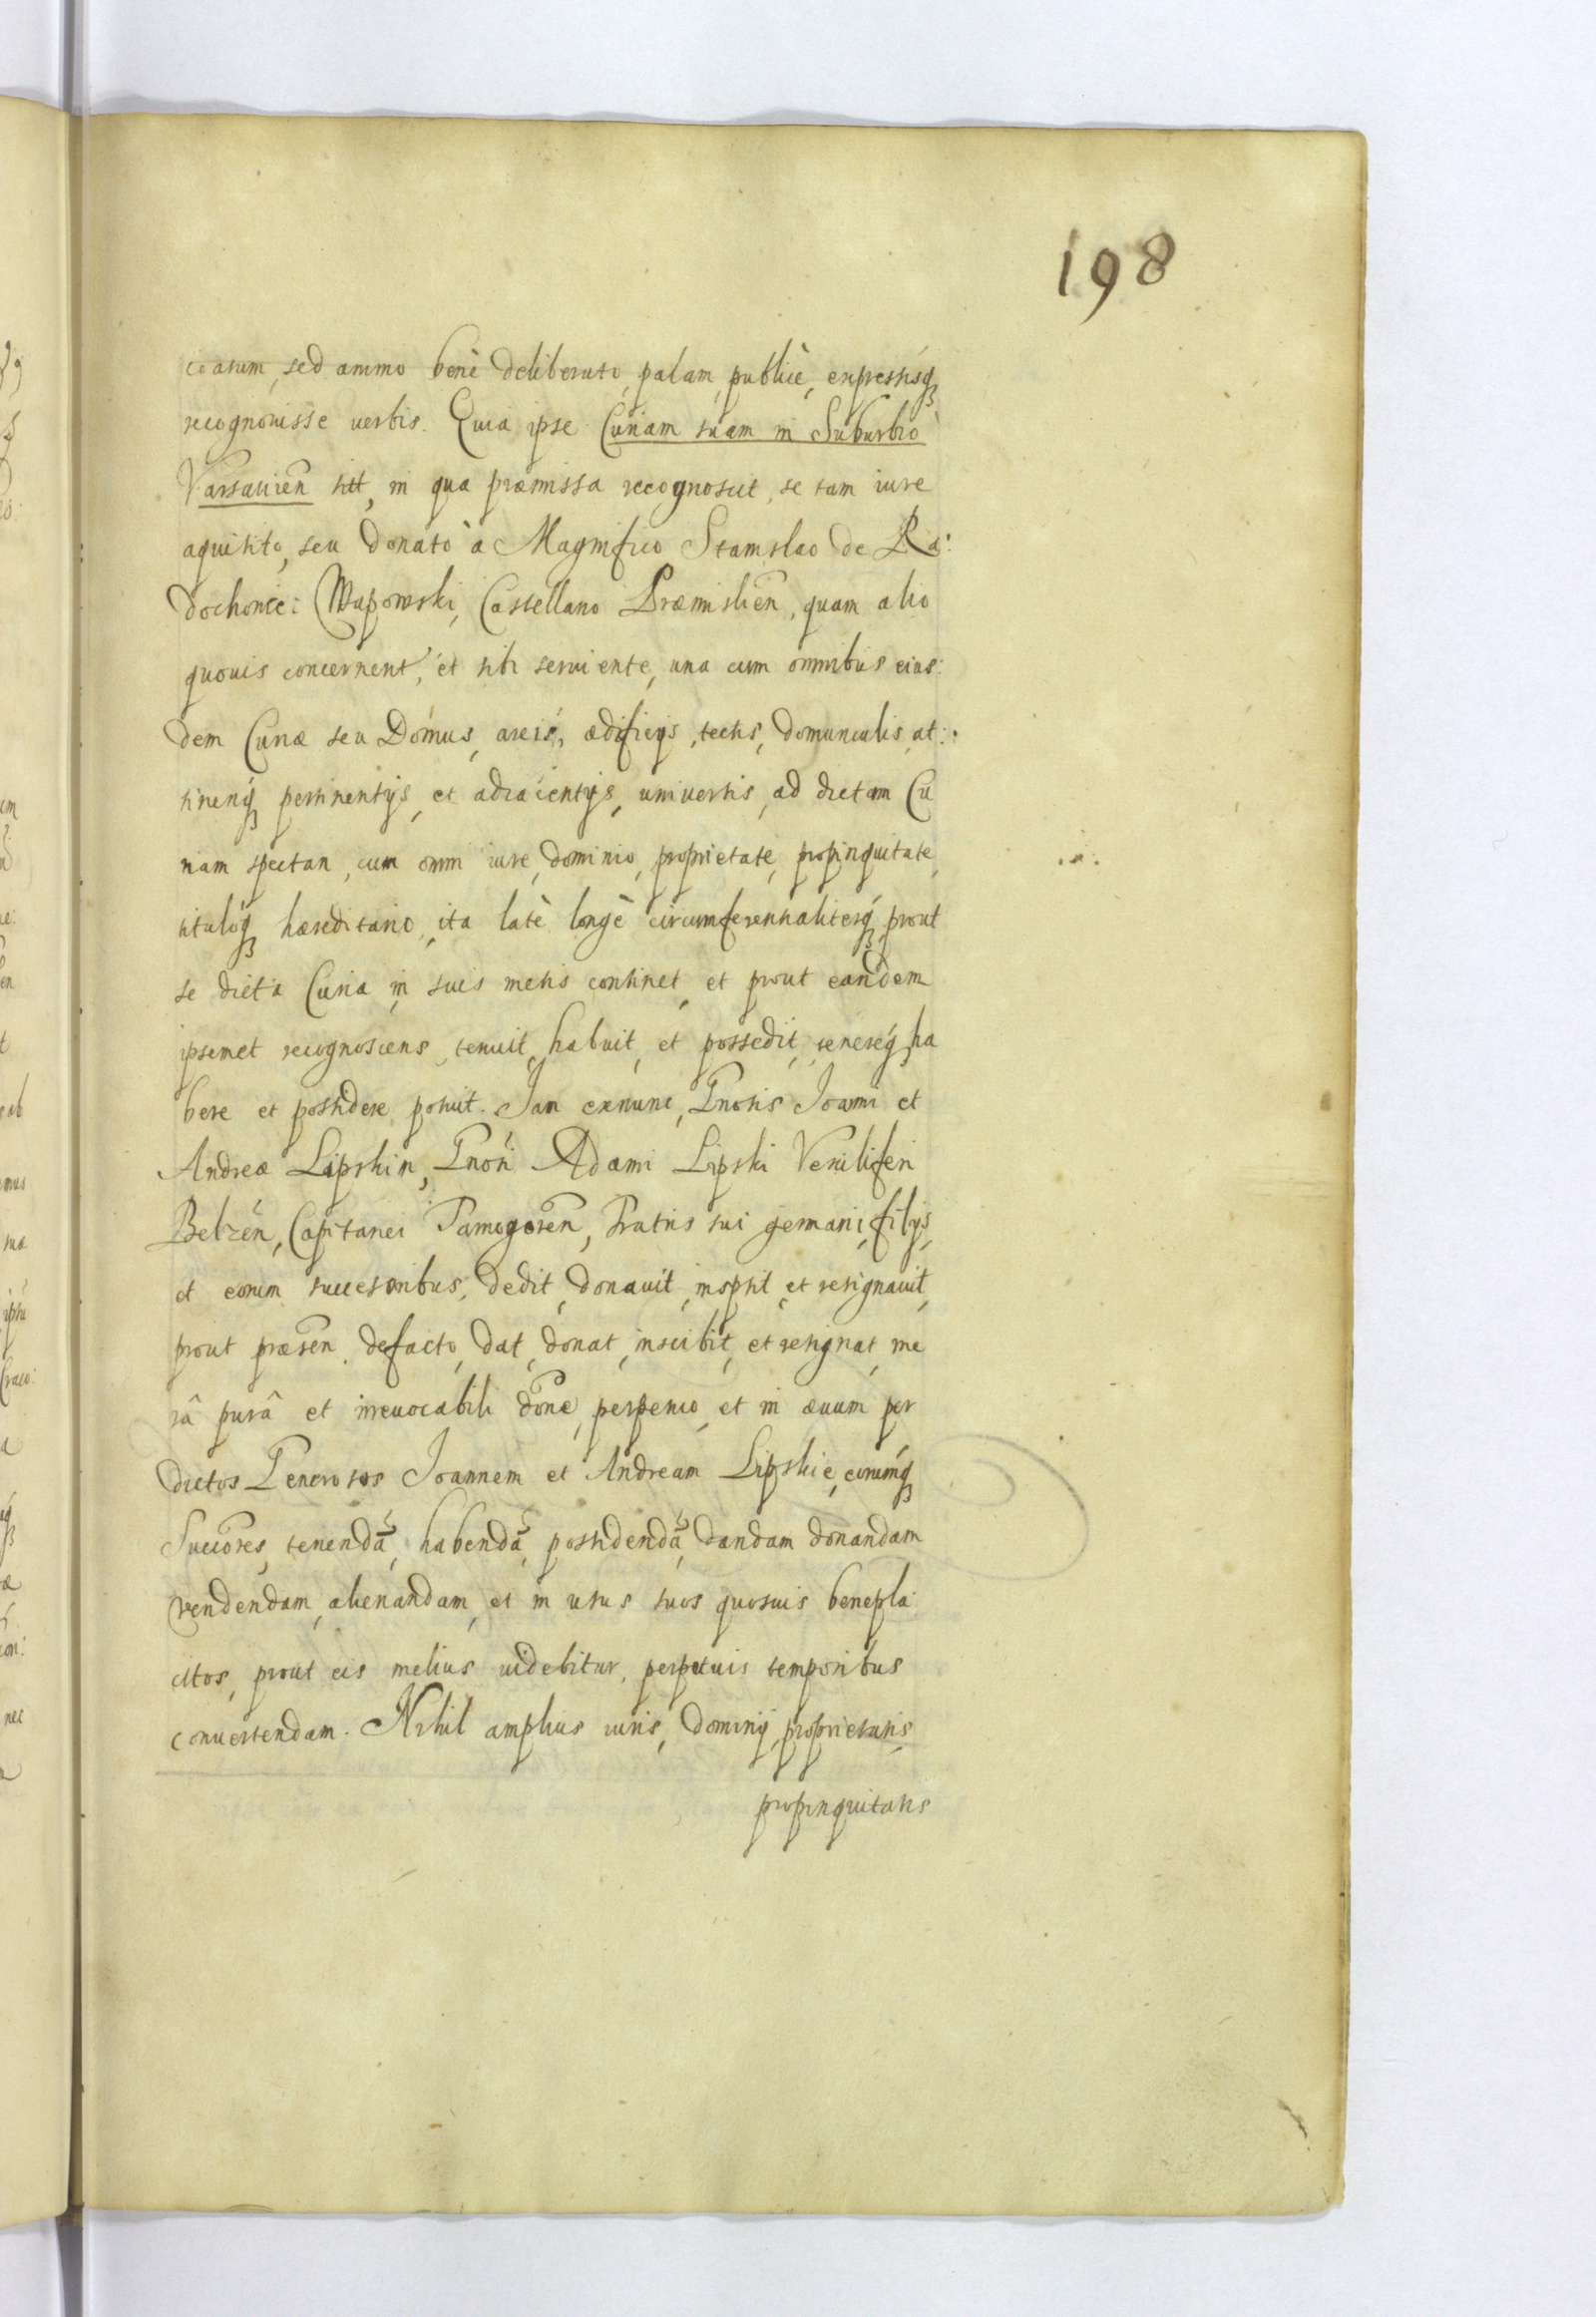 198
coarum, sed animo benè deliberato, palam, publicè, expressisq́ꝫ
recognouisse uerbis. Quia ipse Curiam suam in Suburbio
Varsauien̄ sitt, in qua præmissa recognoscit, se tam iure
aquisito, seu donato à Magnifico Stanislao de Ra:
dochonice: Wapowski, Castellano Præmislien̄, quam alio
quouis concernent, et sibi seruiente, una cum omnibus eius:
dem Curiæ seu Domus, areis, ædificijs, tectis, domunculis, at:
tinenq́ꝫ pertinentijs, et adiacentijs, uniuersis, ad dictam Cu
riam spectan, cum omni iure, dominio, proprietate, propinquitate,
tituloq́ꝫ hæreditario, ita latè longè circumferentialiterq́ꝫ, prout
se dicta Curia in suis metis continet, et prout eandem
ipsemet recognoscens, tenuit, habuit, et possedit, tenereq́ꝫ, ha
bere et possidere potuit. Jan exnunc, Gnosis Joanni et
Andreæ Lipskin, Gnosi Adami Lipski Vexiliferi
Belzen̄, Capitanei Tamogoren̄, Fratris sui germani, filijs,
et eorum successoribus, dedit, donauit, inspsit, et resignauit,
prout præsen̄. defacto, dat, donat, inscribit, et resignat, me
râ purâ et irreuocabili don̄e, perpenio, et in æuum per
dictos Generosos Joannem et Andream Lipskie, eorumq́ꝫ
Succ̄ores, tenendā, habendā, possidendā, dandam donandam
vendendam, alienandam, et in usus suos quosuis benepla
citos, prout eis melius uidebitur, perpetuis temporibus
conuertendam. Nihil amplius iuris, Dominij, proprietatis,
propinquitatis